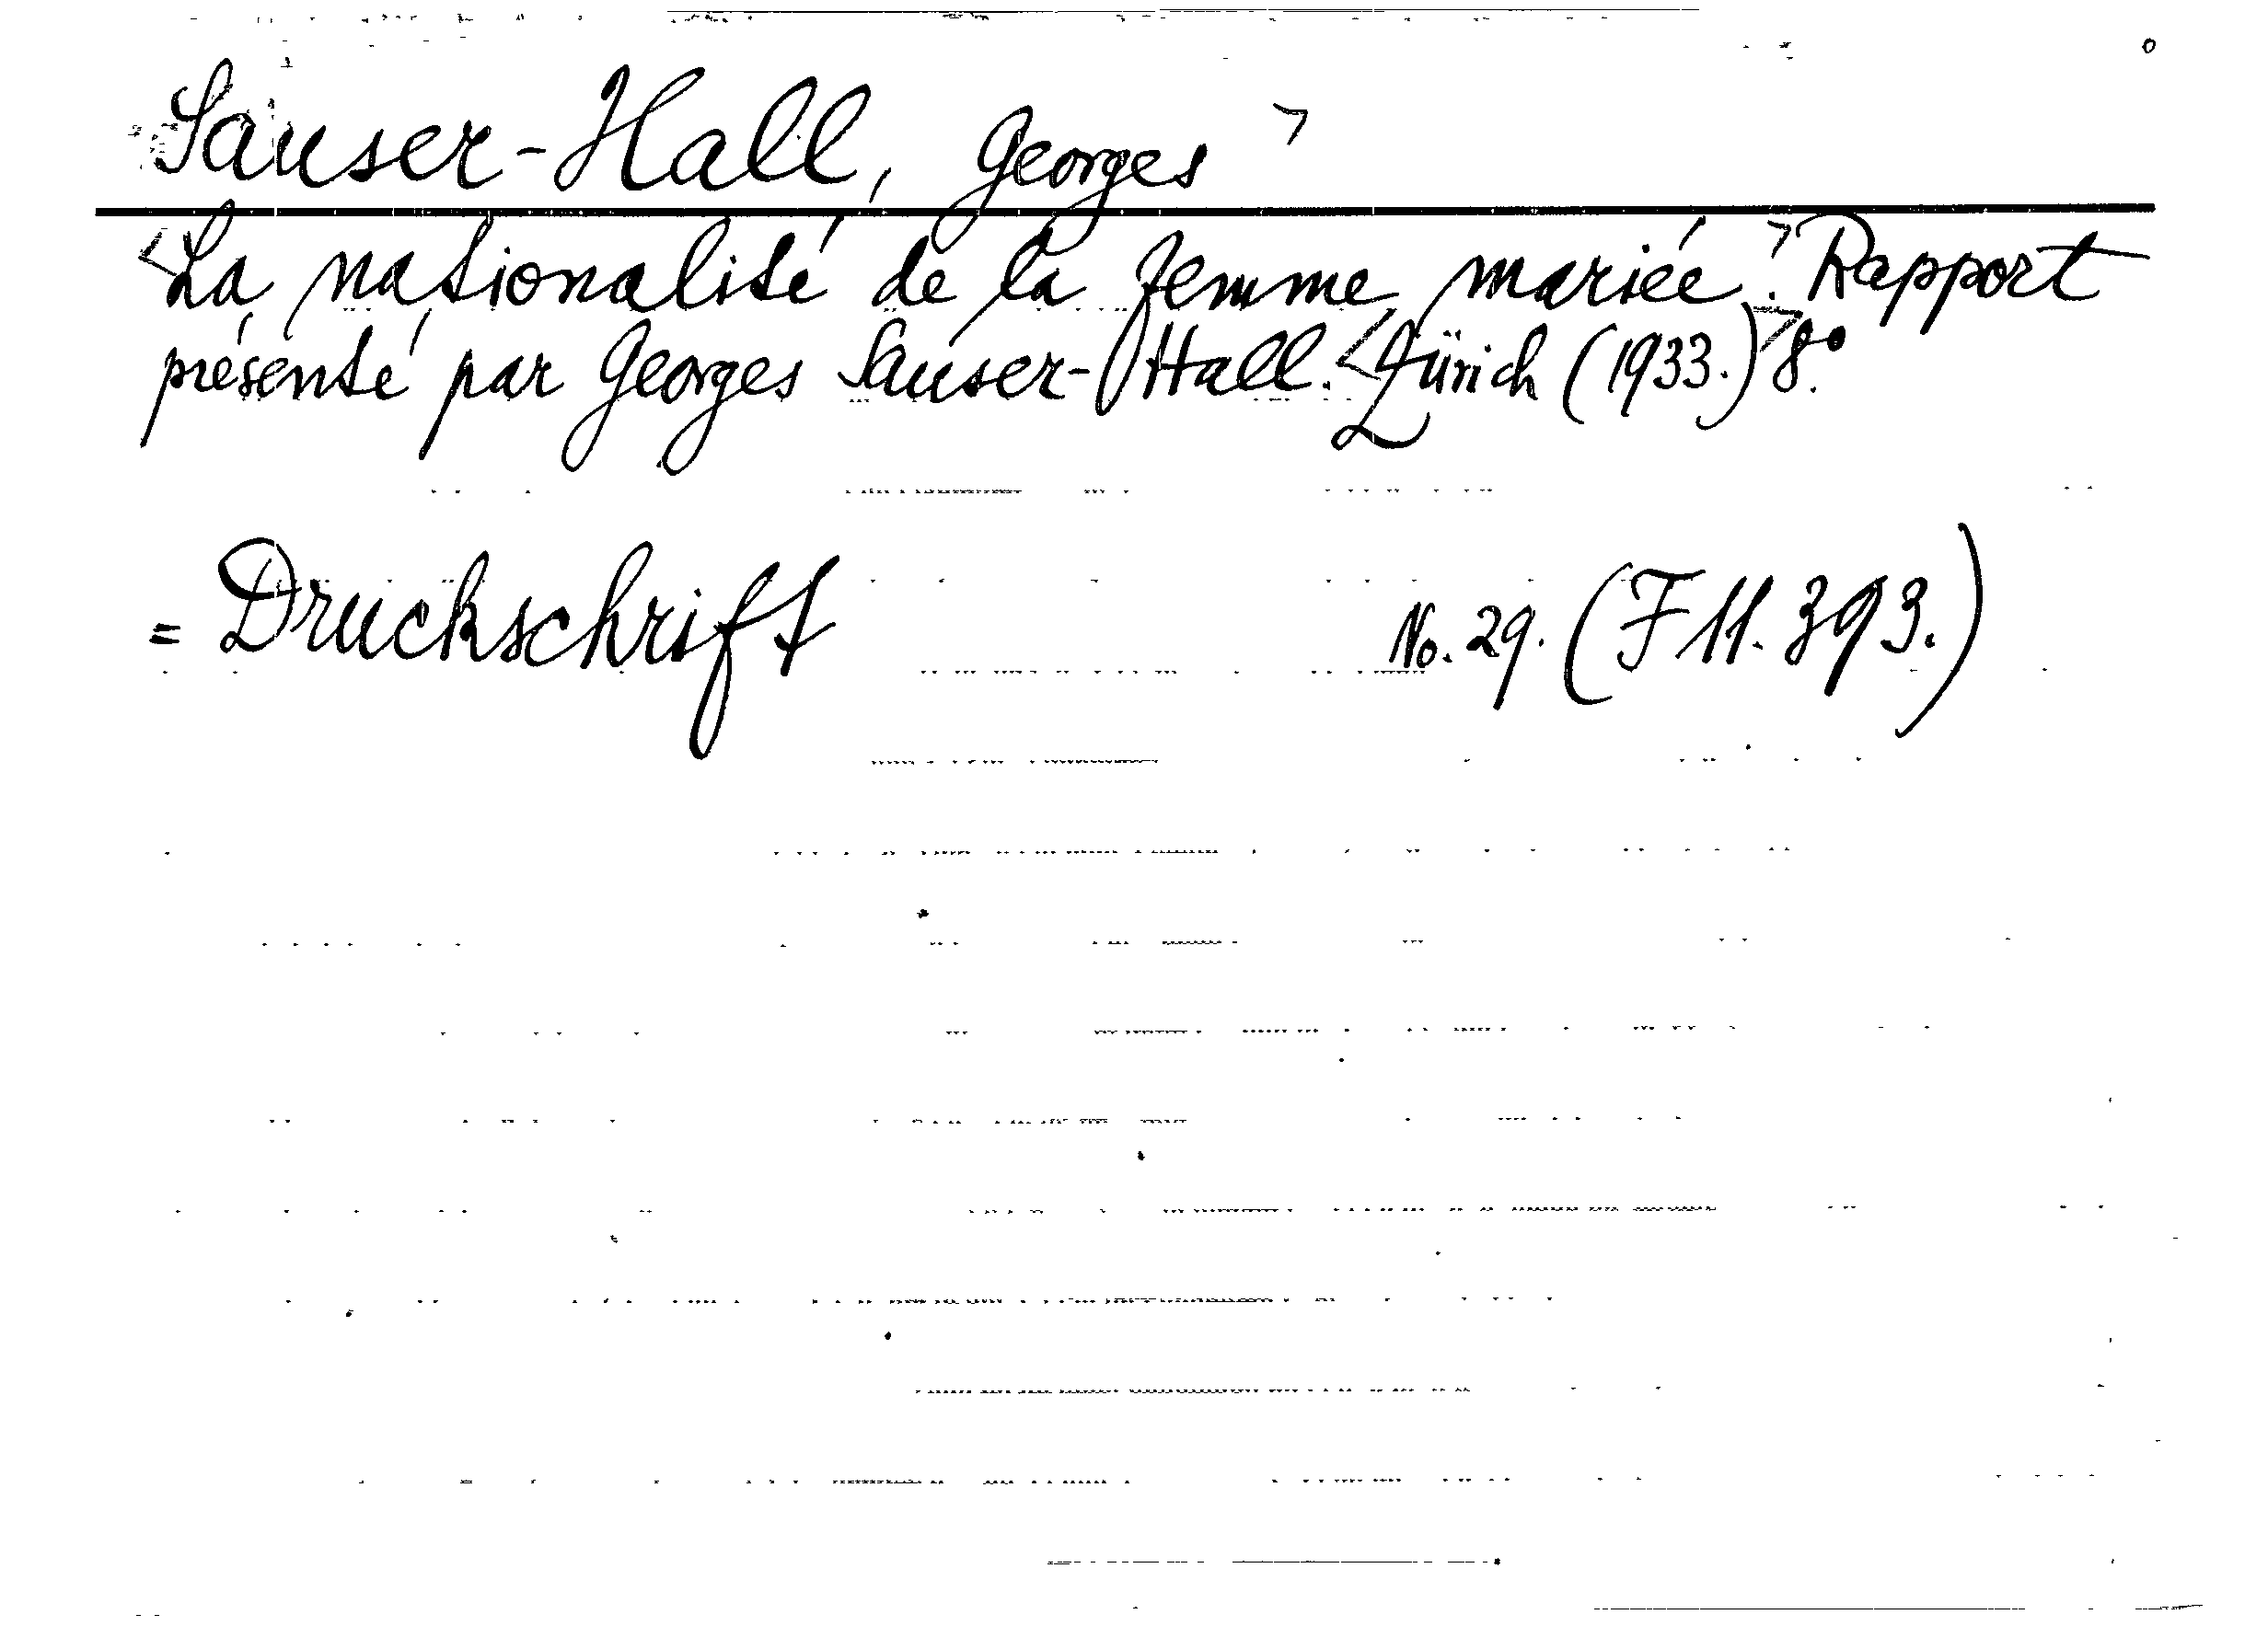 Sauser-Hall, Georges >
<La nationalité de la femme mariée.> Rapport
présenté par Georges Sauser-Hall. <Zürich (1933.)> 8.°
= Druckschrift No. 29. (F 11. 393.)